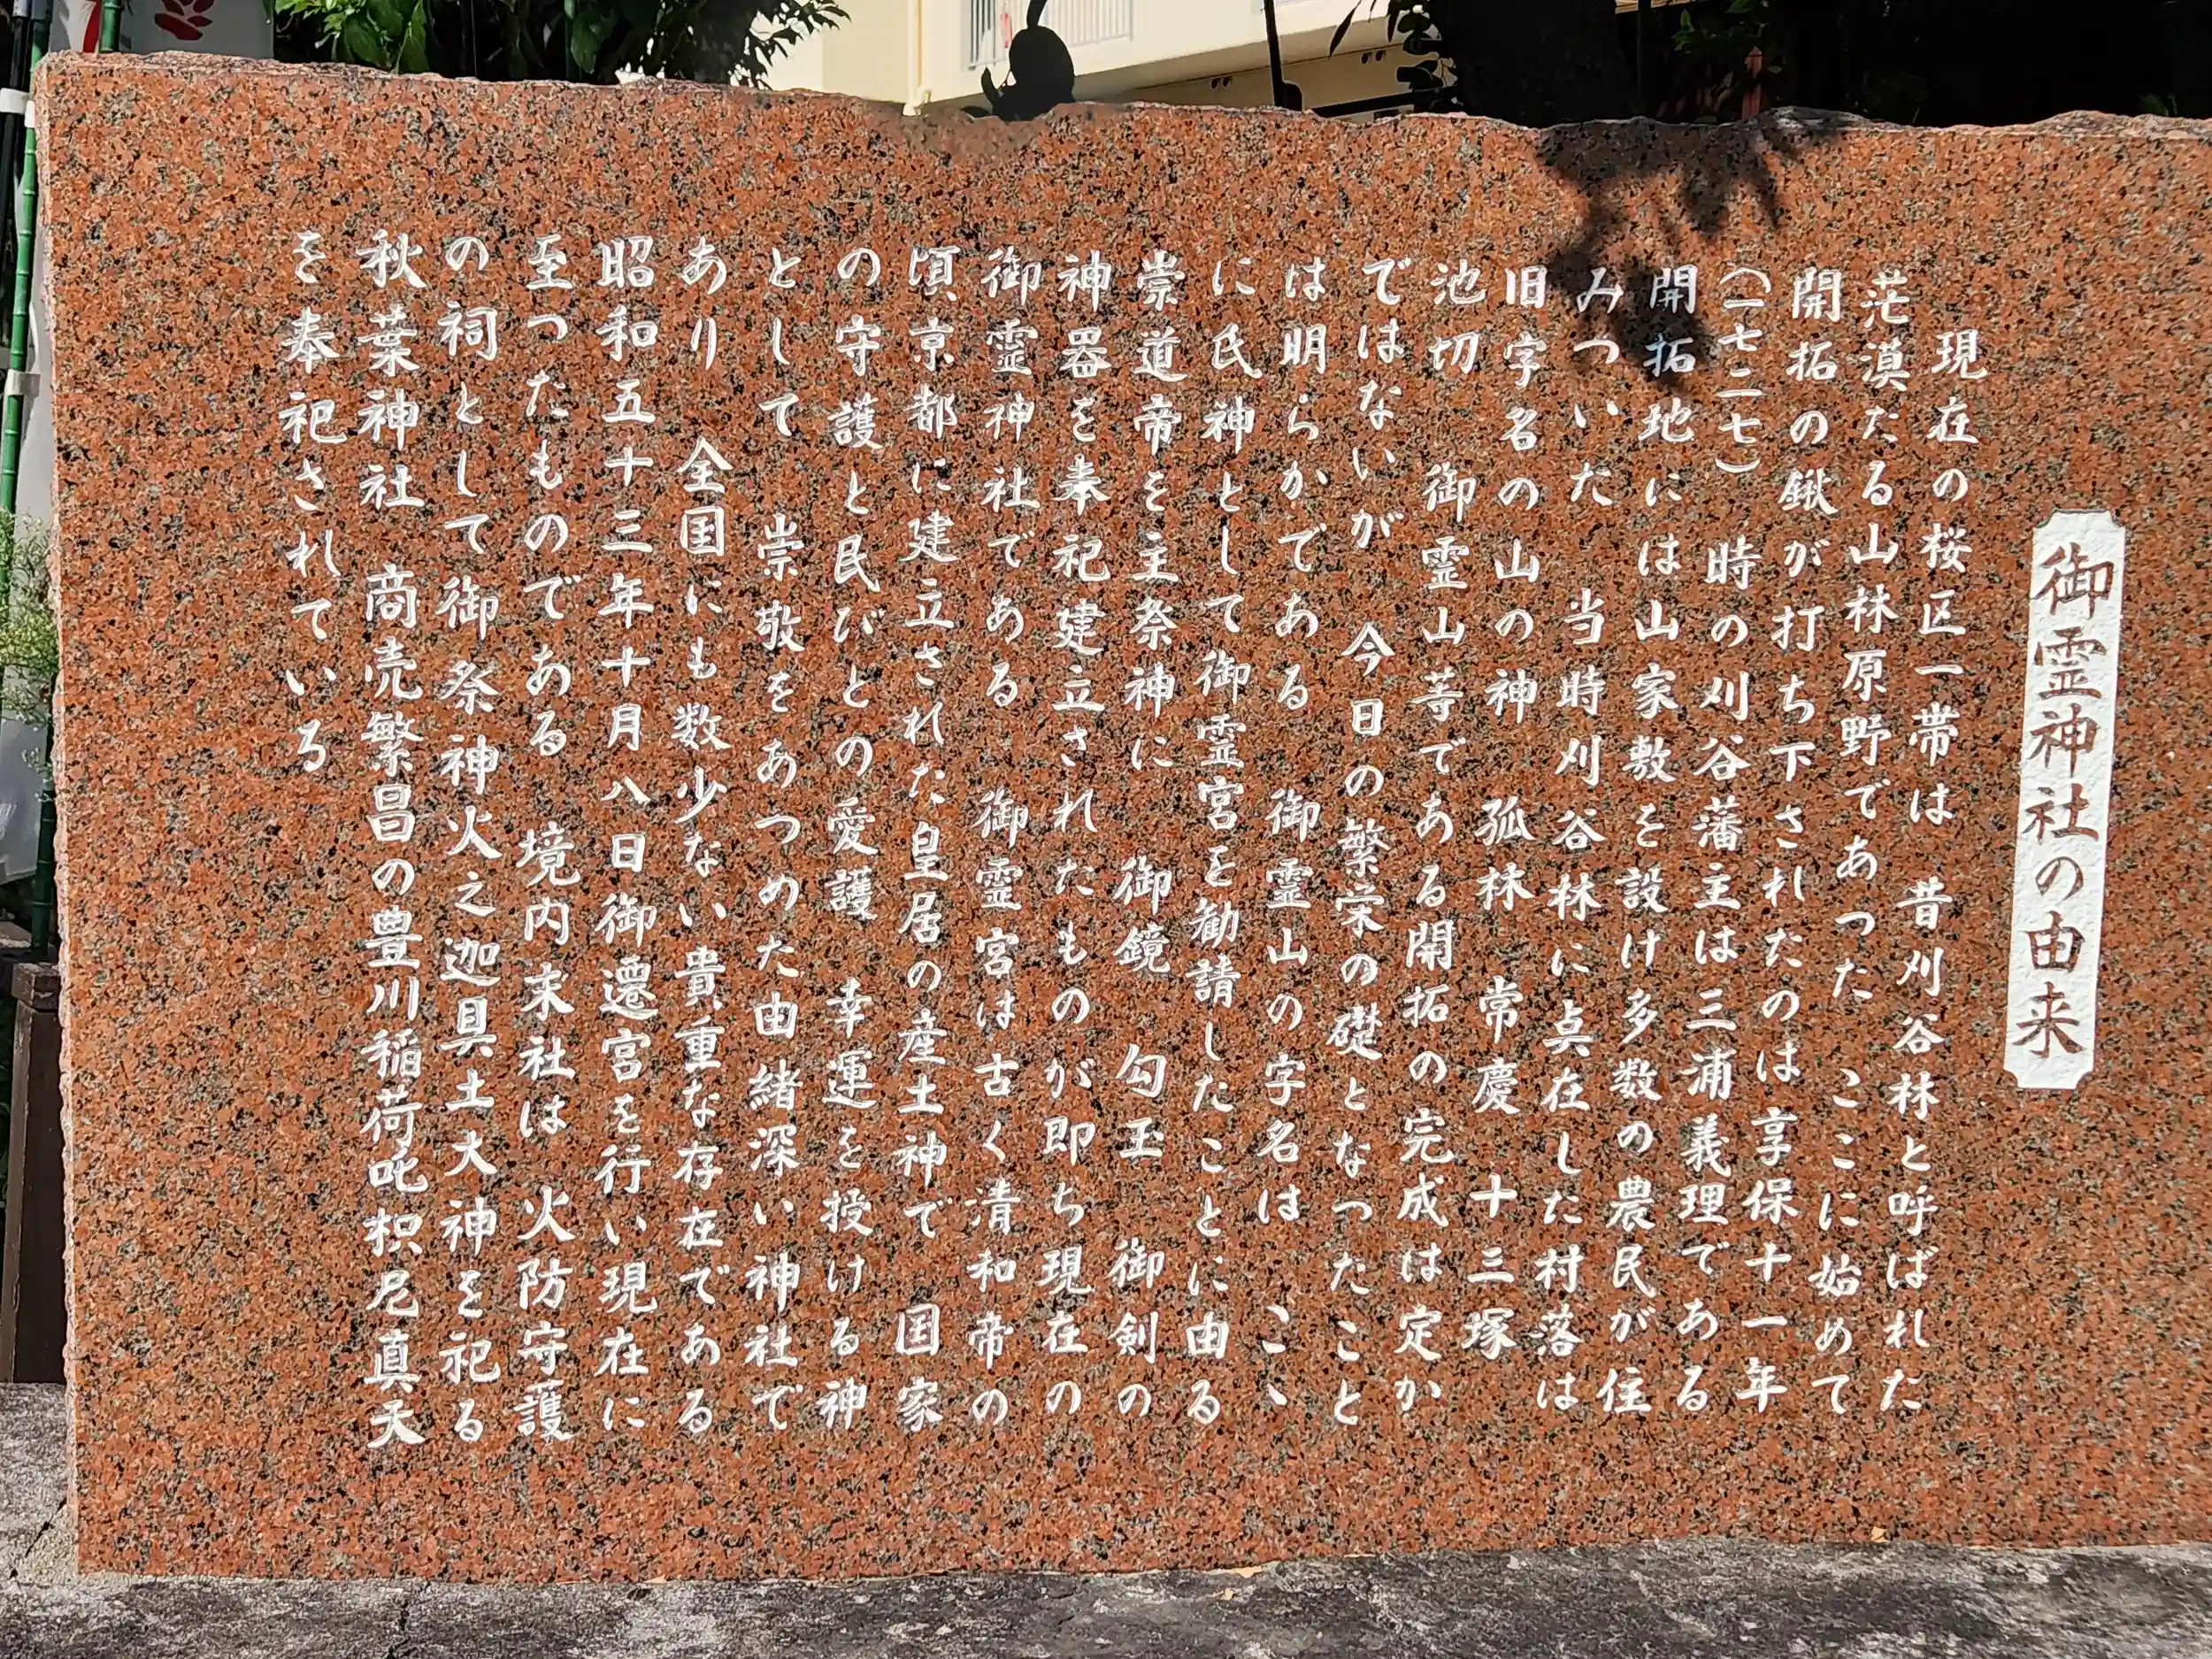 御霊神社の由来
現在の桜区一帯は　昔刈谷林と呼ばれた
茫漠たる山林原野であつた　ここに始めて
開拓の鍬が打ち下されたのは享保十一年
（一七二七）　時の刈谷藩主は三浦義理である
開拓地には山家敷を設け多数の農民が住
みついた　当時刈谷林に点在した村落は
旧字名の山の神　孤林　常慶　十三塚
池切　御霊山等である開拓の完成は定か
ではないが　今日の繁栄の礎となつたこと
は明らかである　御霊山の字名は　こゝ
に氏神として御霊宮を勧請したことに由る
崇道帝を主祭神に　御鏡　勾玉　御剣の
神器を奉祀建立されたものが即ち現在の
御霊神社である　御霊宮は古く清和帝の
頃京都に建立された皇居の産土神で　国家
の守護と民びとの愛護　幸運を授ける神
として　崇敬をあつめた由緒深い神社で
あり　全国にも数少ない貴重な存在である
昭和五十三年十月八日御遷宮を行い現在に
至つたものである　境内末社は　火防守護
の祠として御祭神火之迦具土大神を祀る
秋葉神社　商売繁昌の豊川稲荷吒枳尼真天
を奉祀されている